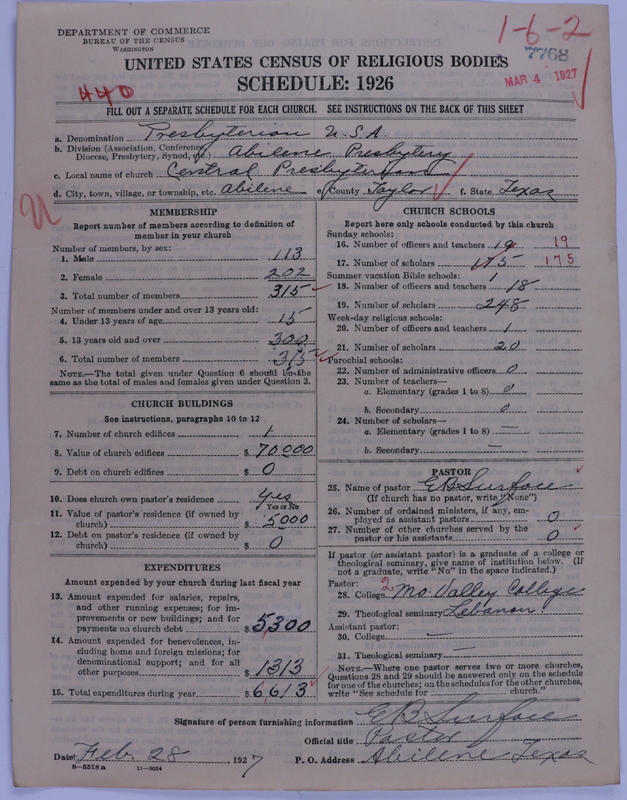 DEPARTMENT OF COMMERCE
BUREAU OF THE CENSUS
WASHINGTON
1-6-2
7768
MAR 4 1927
UNITED STATES CENSUS OF RELIGIOUS BODIES
SCHEDULE: 1926
440
FILL OUT A SEPARATE SCHEDULE FOR EACH CHURCH. SEE INSTRUCTIONS ON THE BACK OF THIS SHEET
a. Denomination Presbyterian U.S.A.
b. Division (Association, Conference, Diocese, Presbytery, Synod, etc.) Abilene Presbytery
c. Local name of church Central Presbyterian
d. City, town, village, or township, etc. Abilene e. County Taylor f. State Texas
MEMBERSHIP
Report number of members according to definition of
member in your church
Number of members, by sex:
1. Male 113
2. Female 202
3. Total number of members 315
Number of members under and over 13 years old:
4. Under 13 years of age 15
5. 13 years old and over 300
6. Total number of members 315
NOTE.—The total given under Question 6 should be the
same as the total of males and females given under Question 3.
CHURCH BUILDINGS
See instructions, paragraphs 10 to 12
7. Number of church edifices 1
8. Value of church edifices $ 70000
9. Debt on church edifices $ 0
10. Does church own pastor's residence yes
Yes or No
11. Value of pastor's residence (if owned by
church) $ 5000
12. Debt on pastor's residence (if owned by
church) $ 0
EXPENDITURES
Amount expended by your church during last fiscal year
13. Amount expended for salaries, repairs,
and other running expenses; for im-
provements or new buildings; and for
payments on church debt $ 5300
14. Amount expended for benevolences, in-
cluding home and foreign missions; for
denominational support; and for all
other purposes $ 1313
15. Total expenditures during year $ 6,613
CHURCH SCHOOLS
Report here only schools conducted by this church
Sunday schools:
16. Number of officers and teachers 19 19
17. Number of scholars 175 175
Summer vacation Bible schools: 1
18. Number of officers and teachers 18
19. Number of scholars 248
Week-day religious schools:
20. Number of officers and teachers 1
21. Number of scholars 20
Parochial schools:
22. Number of administrative officers 0
23. Number of teachers—
a. Elementary (grades 1 to 8) 0
b. Secondary 0
24. Number of scholars—
a. Elementary (grades 1 to 8) —
b. Secondary —
PASTOR
25. Name of pastor E B Surface
(If church has no pastor, write "None")
26. Number of ordained ministers, if any, em-
ployed as assistant pastors 0
27. Number of other churches served by the
pastor or his assistants 0
If pastor (or assistant pastor) is a graduate of a college or
theological seminary, give name of institution below. (If
not a graduate, write "No" in the space indicated.)
Pastor: 2
28. College Mo. Valley College
29. Theological seminary Lebanon
Assistant pastor:
30. College —
31. Theological seminary —
NOTE.—Where one pastor serves two or more churches,
Questions 28 and 29 should be answered only on the schedule
for one of the churches; on the schedules for the other churches,
write "See schedule for church."
Signature of person furnishing information E B Surface
Official title Pastor
Date Feb. 28, 1927 P. O. Address Abilene Texas
8—5518 a 11—9054